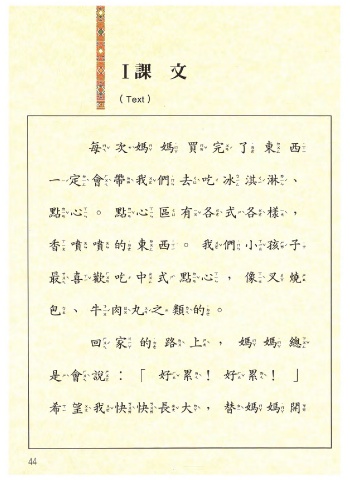 I 課 文
(Text)
每次媽媽買完了東西
一定會帶我們去吃冰淇淋、
點心。點心區有各式各樣,
香噴噴的東西。我們小孩子
最喜歡吃中式點心,像叉燒
包、牛肉丸之類的。
回家的路上,媽媽總
是會說:「好累!好累!」
希望我快快長大,替媽媽開
44